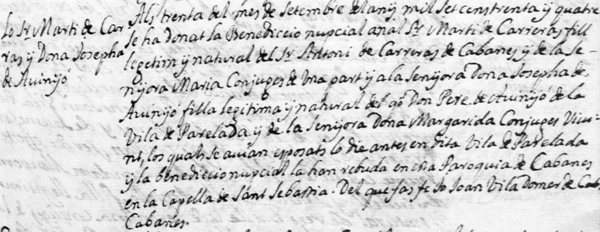 Lo Sr. Marti de Car
ras y Dona Josepha
de Avinyó
Als trenta del mes de Setembre del any mil set cens trenta y quatre
se ha donat la Benediccio nupcial anal Sr. Marti de Carreras fill
llegitim y natural del Sr. Antoni de Carreras de Cabanes, y de la Se-
nyora Maria Conjuges de una part y a la Senyora Dona Josepha de
Avinyó filla legitima y natural del qº Don Pere de Avinyó de la
Vila de Parelada y de la Senyora Dona Margarida Conjuges Vivi-
nt, los quals se avian esposats lo die antes en dita Vila de Parelada
y la benediccio nupcial la han rebuda en esta Paroquia de Cabanes
en la Capella de Sant Sebastia. Del que fas fe Jo Joan Vila Domer de Cab,
Cabanes.